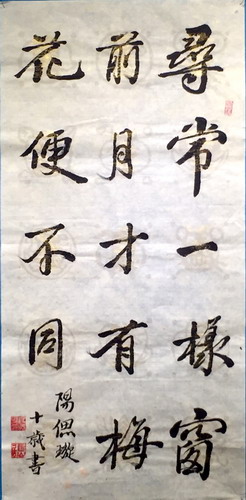 尋常一樣窗
前月才有梅
花便不同
陽偲璇
十歲書